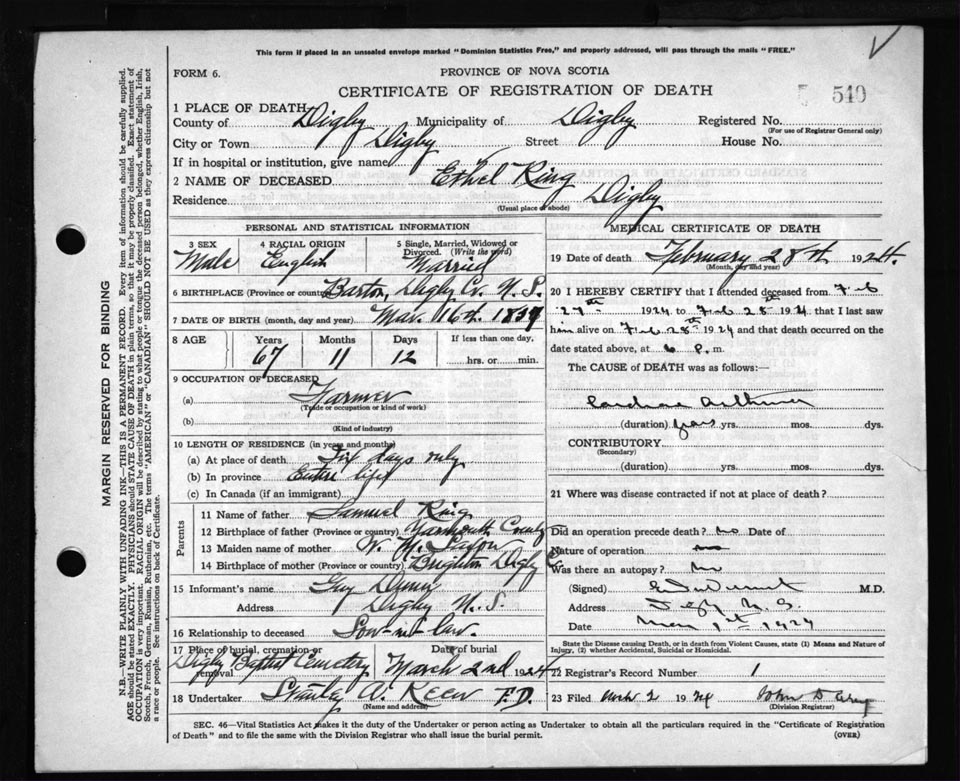 This form if placed in an unsealed envelope marked "Dominion Statistics Free," and properly addressed, will pass through the mails "FREE."
FORM 6.
PROVINCE OF NOVA SCOTIA
CERTIFICATE OF REGISTRATION OF DEATH
540
1 PLACE OF DEATH
County of Digby Municipality of Digby Registered No.
(For use of Registrar General only)
City or Town Digby Street House No.
If in hospital or institution, give name
2 NAME OF DECEASED Ethel Ring
Residence Digby
(Usual place of abode)
PERSONAL AND STATISTICAL INFORMATION
3 SEX Male
4 RACIAL ORIGIN English
5 Single, Married, Widowed or Divorced. (Write the word) Married
6 BIRTHPLACE (Province or country) Barton, Digby Co. N. S.
7 DATE OF BIRTH (month, day and year) Mar. 16th
8 AGE Years 67 Months 11 Days 12 If less than one day, hrs. or min.
9 OCCUPATION OF DECEASED
(a) Farmer
(Trade or occupation or kind of work)
(b)
(Kind of industry)
10 LENGTH OF RESIDENCE (in years and months)
(a) At place of death Six days only
(b) In province Entire life
(c) In Canada (if an immigrant)
Parents
11 Name of father Samuel Ring
12 Birthplace of father (Province or country) Yarmouth County
13 Maiden name of mother
14 Birthplace of mother (Province or country) Brighton Digby Co
15 Informant's name Guy
Address Digby N. S.
16 Relationship to deceased Son-in-law.
17 Place of burial, cremation or removal Digby Baptist Cemetery
Date of burial March 2nd 1924
18 Undertaker Stanley A. Keen F.D.
(Name and address)
MEDICAL CERTIFICATE OF DEATH
19 Date of death February 28th 1924.
(Month, day and year)
20 I HEREBY CERTIFY that I attended deceased from Feb
27th 1924 to Feb 28th 1924 that I last saw
him alive on Feb 28th 1924 and that death occurred on
date stated above, at 6 P. m.
The CAUSE of DEATH was as follows:—
Cardiac Asthma
(duration) years yrs. mos. dys.
CONTRIBUTORY
(Secondary)
(duration) yrs. mos. dys.
21 Where was disease contracted if not at place of death?
Did an operation precede death? no Date of
Nature of operation no
Was there an autopsy? no
(Signed) M.D.
Address Digby N. S.
Date Mar 1st 1924
State the Disease causing Death, or in death from Violent Causes, state (1) Means and Nature of Injury, (2) whether Accidental, Suicidal or Homicidal.
22 Registrar's Record Number 1
23 Filed Mch 2 1924 John D
(Division Registrar)
SEC. 46—Vital Statistics Act makes it the duty of the Undertaker or person acting as Undertaker to obtain all the particulars required in the "Certificate of Registration
of Death" and to file the same with the Division Registrar who shall issue the burial permit.
(OVER)
MARGIN RESERVED FOR BINDING
N.B.—WRITE PLAINLY WITH UNFADING INK—THIS IS A PERMANENT RECORD. Every item of information should be carefully supplied.
AGE should be stated EXACTLY. PHYSICIANS should STATE CAUSE OF DEATH in plain terms, so that it may be properly classified. Exact statement of
OCCUPATION is very important. RACIAL ORIGIN will be described by stating to what people or tongue the deceased person belonged, whether English, Irish,
Scotch, French, German, Russian, Ruthenian, etc. The terms "AMERICAN" or "CANADIAN" SHOULD NOT BE USED as they express citizenship but not
a race or people. See instructions on back of Certificate.